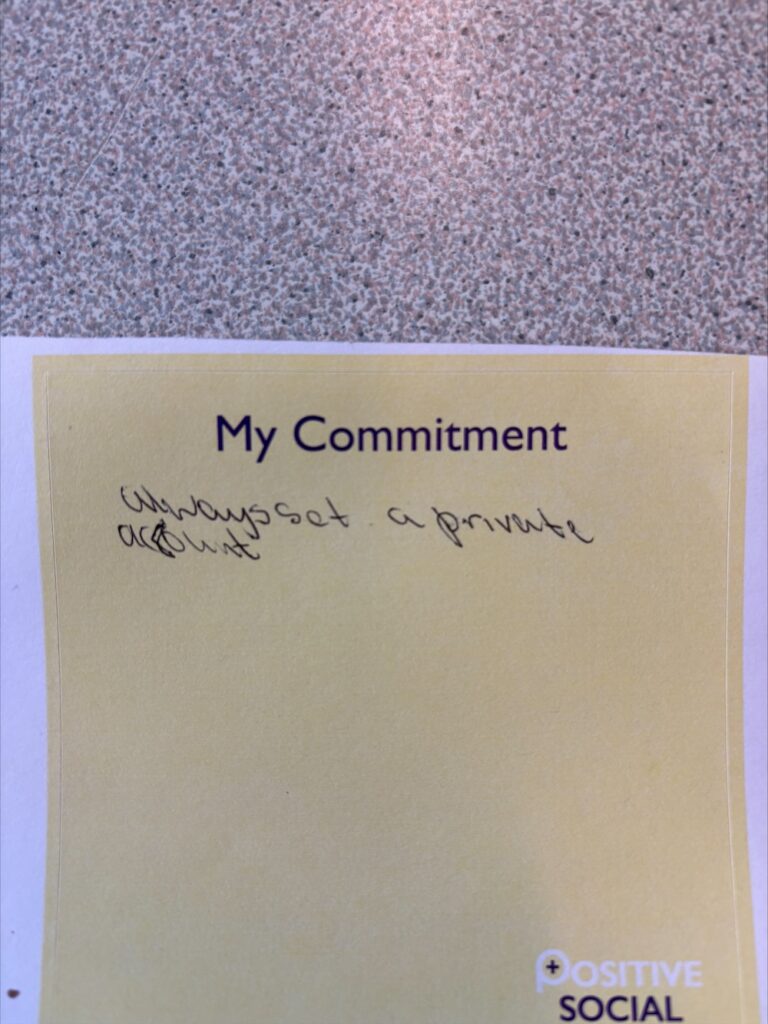 My Commitment
always set a private
account
POSITIVE
SOCIAL